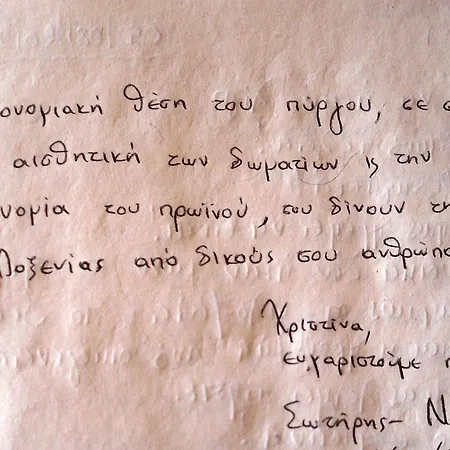 ονομιακή θέση του πύργου, σε σ
αισθητική των δωματίων ις την
νομία του πρωϊνού, του δίνουν τη
λοξενίας από δικούς σου ανθρώπο
Χριστίνα,
ευχαριστούμε π
Σωτήρης - Ν